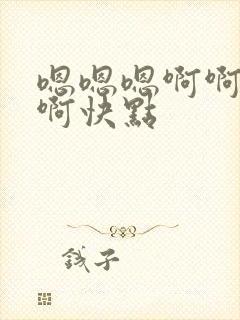 嗯嗯嗯啊啊
啊快點
錢子